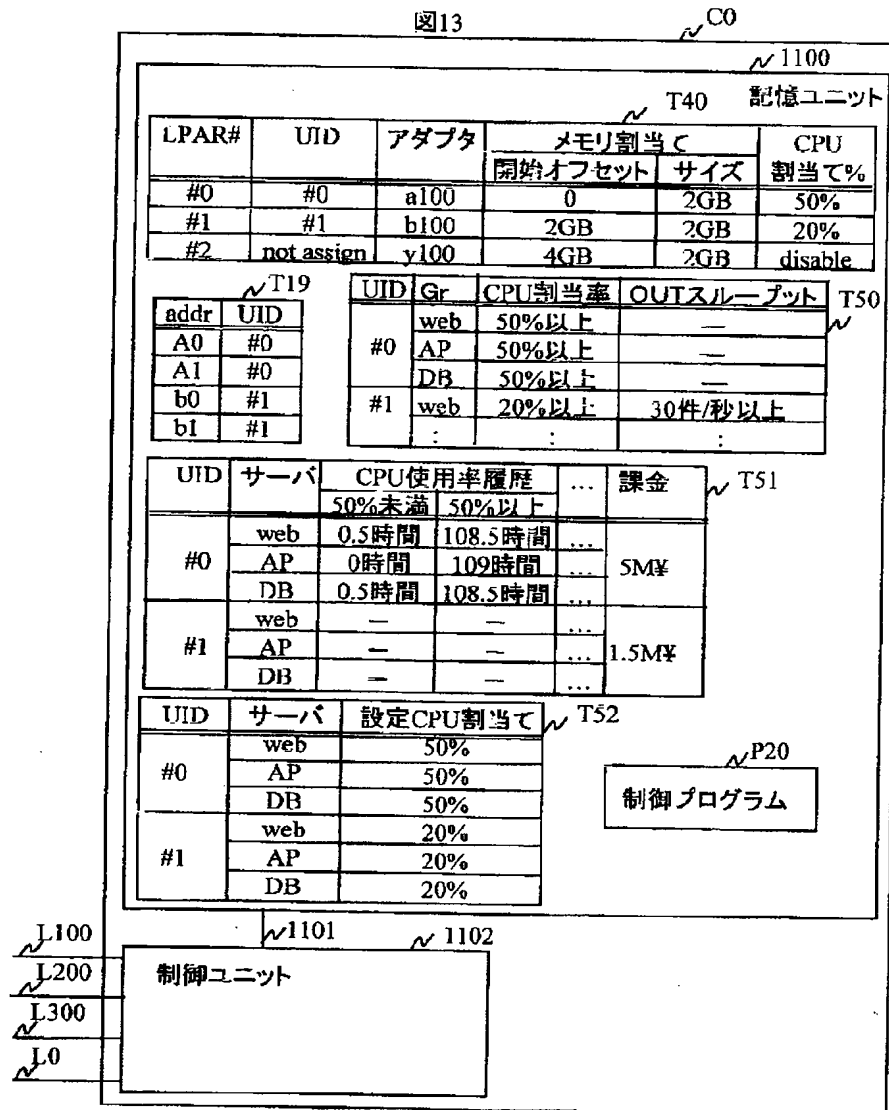 図13
C0
1100
T40 記憶ユニット
LPAR# UID アダプタ メモリ割当て CPU
開始オフセット サイズ 割当て%
#0 #0 a100 0 2GB 50%
#1 #1 b100 2GB 2GB 20%
#2 not assign y100 4GB 2GB disable
T19
addr UID
A0 #0
A1 #0
b0 #1
b1 #1
UID Gr CPU割当率 OUTスループット T50
web 50%以上 —
#0 AP 50%以上 —
DB 50%以上 —
#1 web 20%以上 30件/秒以上
: : :
UID サーバ CPU使用率履歴 … 課金 T51
50%未満 50%以上
web 0.5時間 108.5時間 …
#0 AP 0時間 109時間 … 5M¥
DB 0.5時間 108.5時間 …
web — — …
#1 AP — — … 1.5M¥
DB — — …
UID サーバ 設定CPU割当て T52
web 50%
#0 AP 50%
DB 50%
web 20%
#1 AP 20%
DB 20%
P20
制御プログラム
L100 1101 1102
制御ユニット
L200
L300
L0